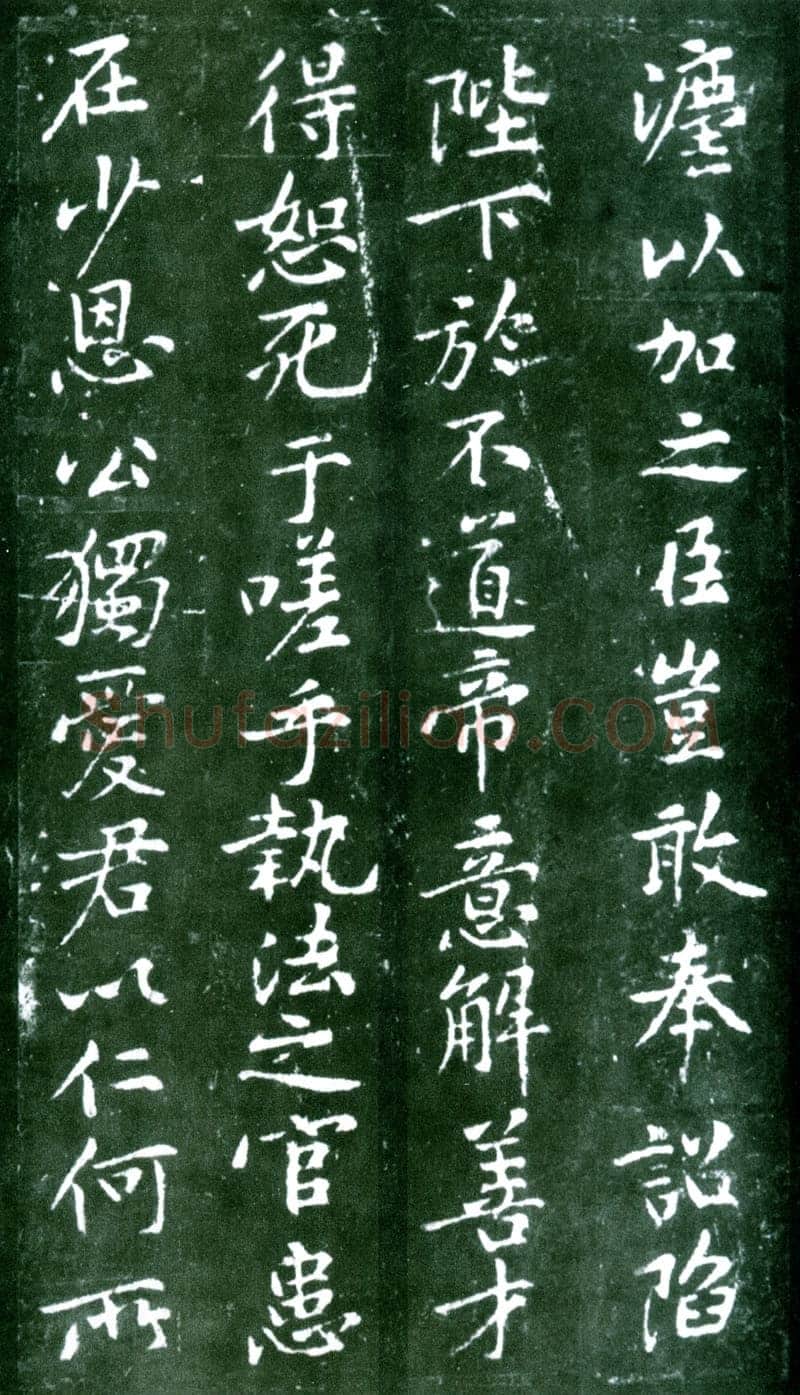 灋以加之臣豈敢奉詔陷
陛下於不道帝意解善才
得恕死于嗟乎執法之官患
在少恩公獨愛君以仁何所
Shufaziliao.COM